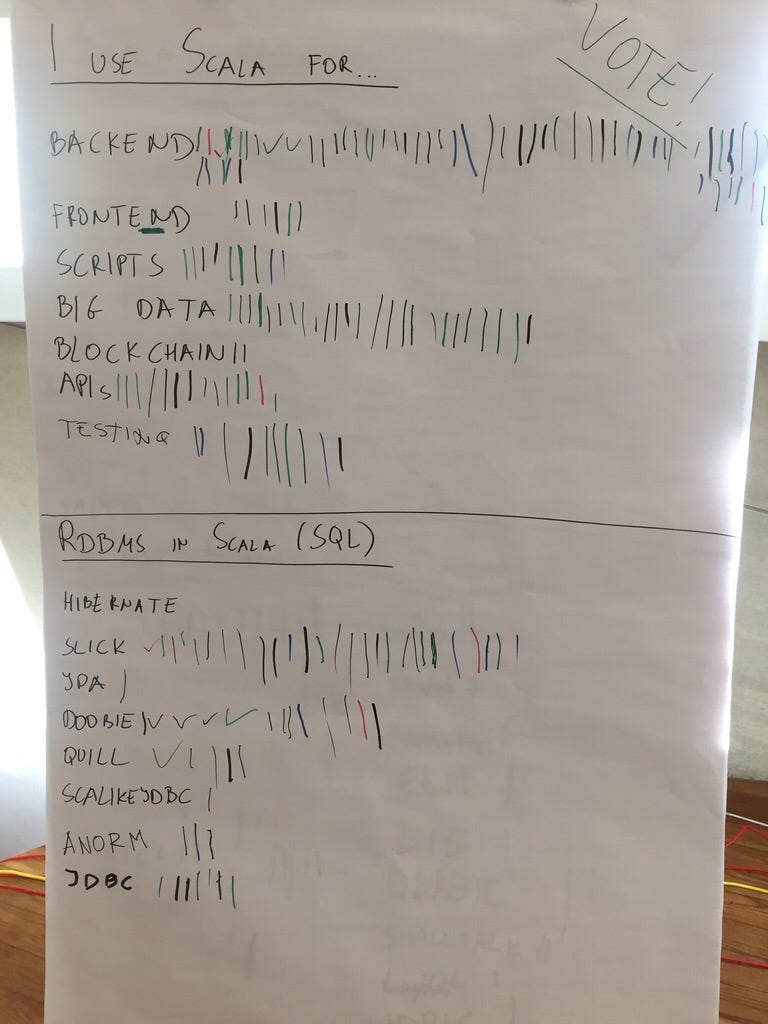 I USE SCALA FOR...
VOTE!
BACKEND
FRONTEND
SCRIPTS
BIG DATA
BLOCKCHAIN
APIs
TESTING
RDBMS IN SCALA (SQL)
HIBERNATE
SLICK
JPA
DOOBIE
QUILL
SCALIKEJDBC
ANORM
JDBC